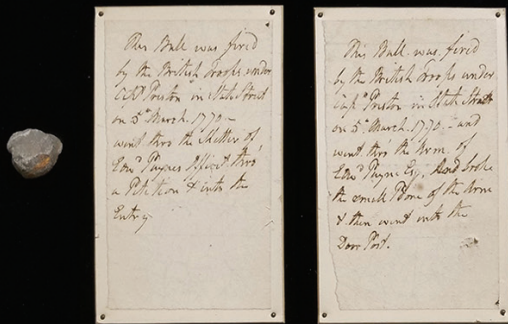 This Ball was fired
by the British Troops under
Capt Preston in State Street
on 5th March. 1770 –
went thro the Shutter of
Edwd Paynes Office & thro
a Petition & into the
Entry
This Ball was fired
by the British Troops under
Capt Preston in State Street
on 5th March. 1770 – and
went thro the Arm of
Edwd Payne Esq. And broke
the small Bone of the Arm
& then went into the
Door Post.